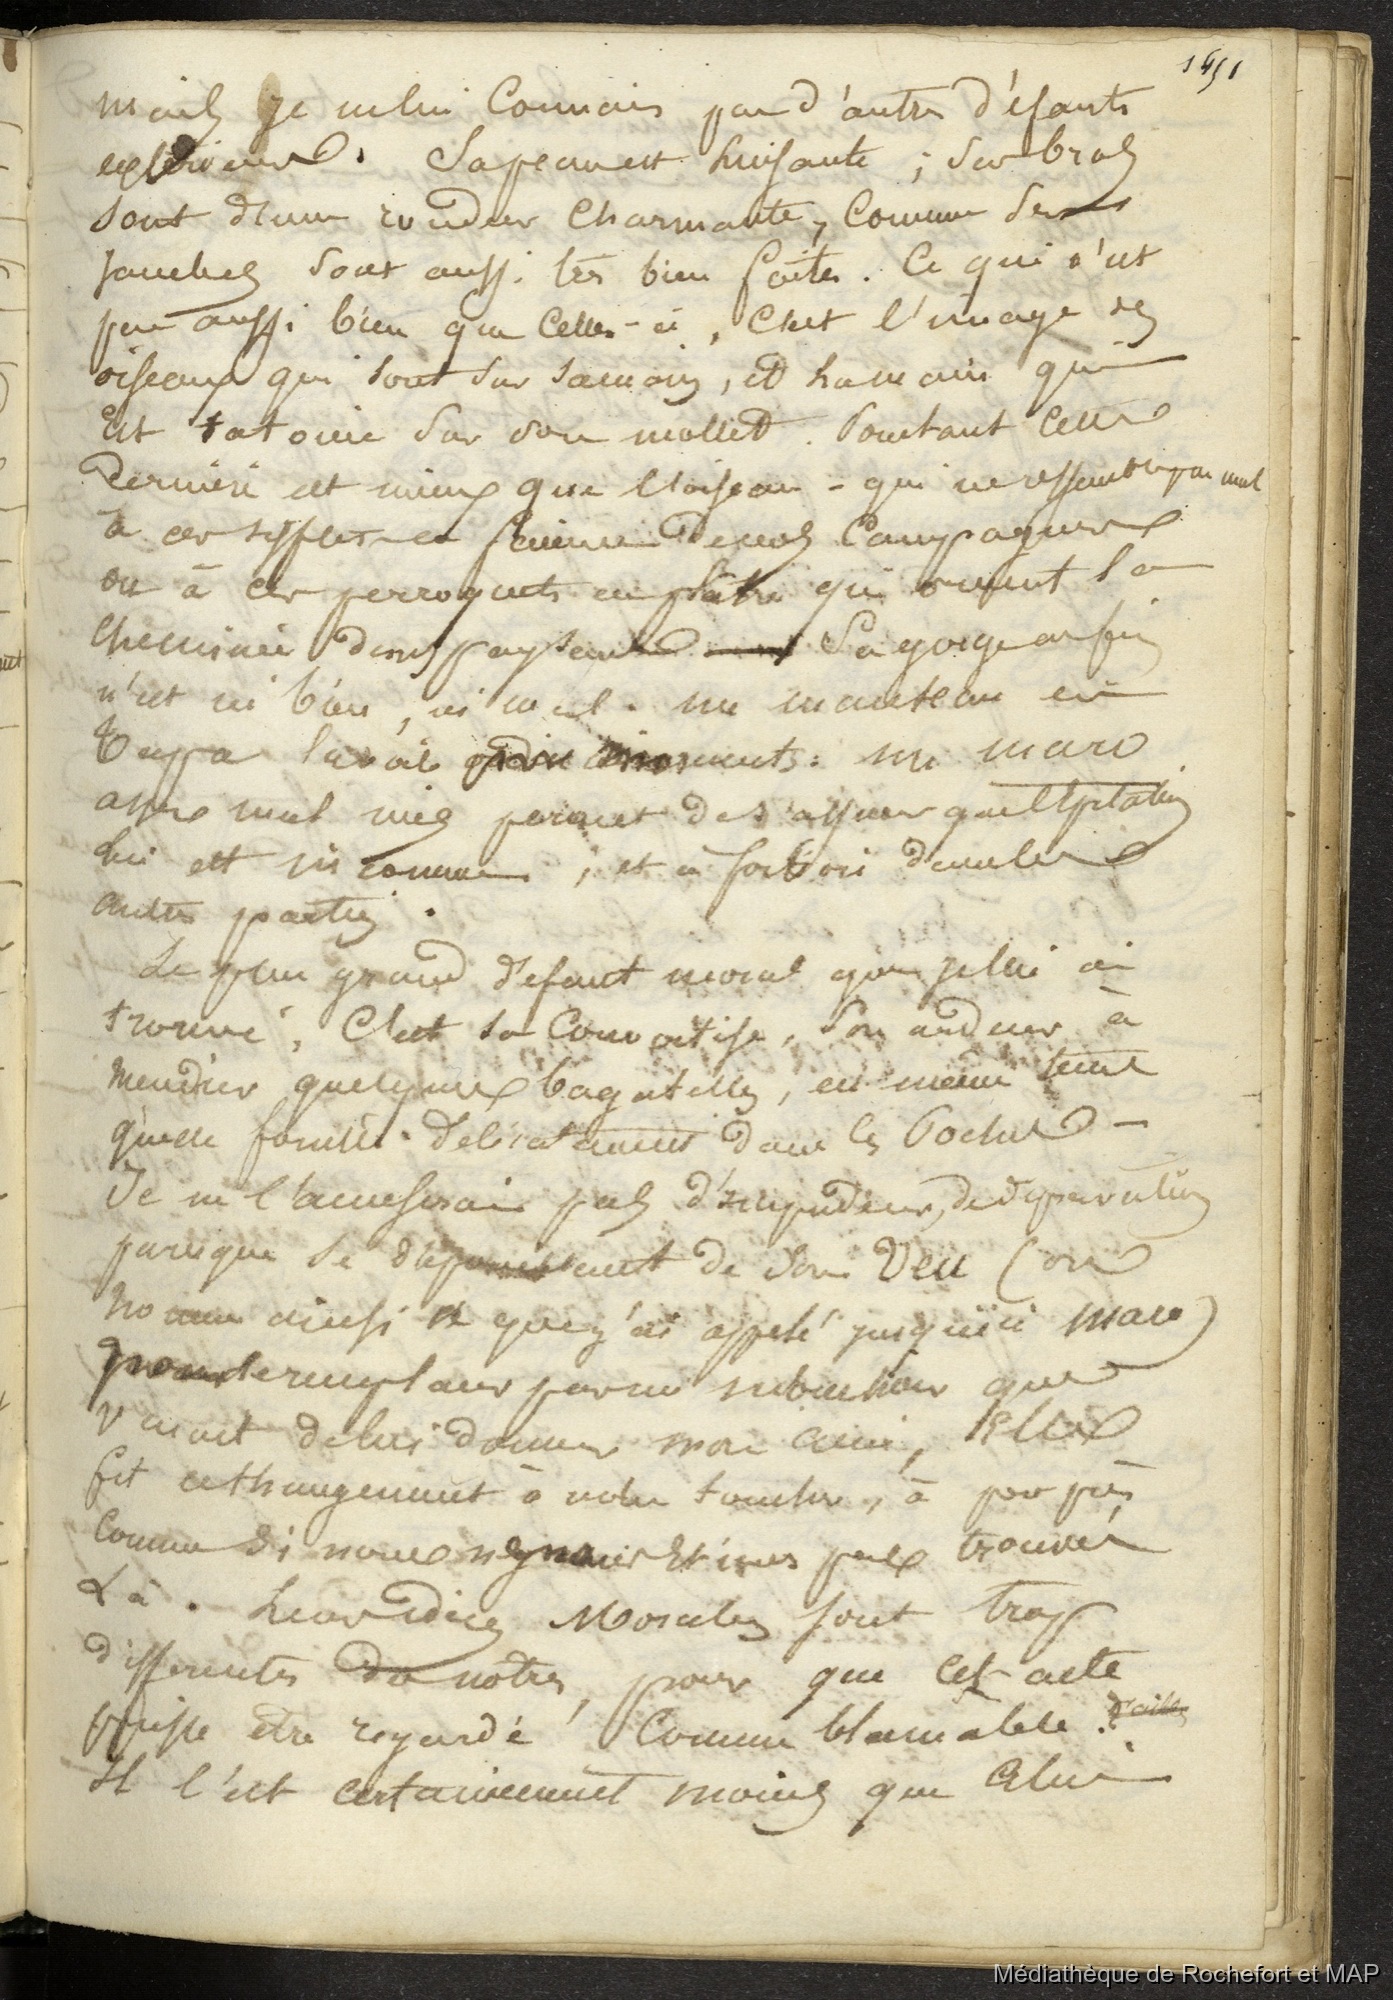 1451
mais je ne lui connais pas d'autres défauts
extérieurs. Sa peau est luisante ; ses bras
sont d'une rondeur charmante, comme ses
jambes sont aussi très bien faites. Ce qui n'est
pas aussi bien que celles-ci, c'est l'image des
oiseaux qui sont sur sa main, et la main qui
est tatouée sur son mollet. Pourtant cette
dernière est mieux que l'oiseau - qui ne ressemble pas mal
à ces sifflets en de nos campagnes
ou à ces perroquets en plâtre qui ornent la
cheminée de nos paysans Sa gorge enfin
n'est ni bien, ni mal. un manteau en
Tappa la voile ordinairement: un maro
assez mal mis permet de s'assurer que l'épilation
lui est inconnue ; et à fortiori dans les
autres parties.
Le plus grand défaut moral que je lui ai
trouvé, c'est sa convoitise, son ardeur à
mendier quelques bagatelles, en même temps
qu'elle fouille délicatement dans les Poches -
Je ne l'accuserai pas d'impudeur, de dépravation
parceque se dépouillant de son Veu (on
nomme ainsi ce que j'ai appelé jusqu'ici maro)
pour le remplacer par un mouchoir que
venait de lui donner mon ami, Elle
fit ce changement à notre , à peu près
comme si nous n'y eussions pas trouvés
Là. Leurs idées Morales sont trop
différentes des notres, pour que cet acte
puisse être regardé comme blamable. d'aill.
Il l'est certainement moins que celui
Médiathèque de Rochefort et MAP